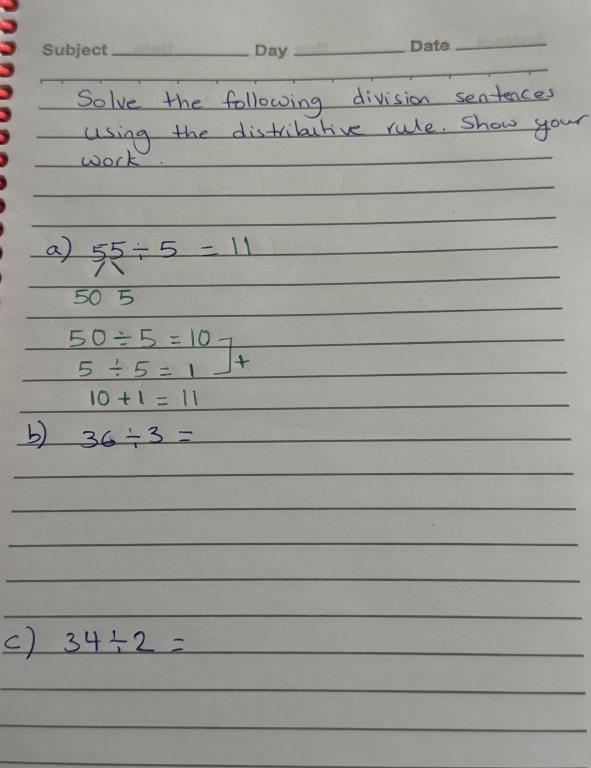 Subject Day Date
Solve the following division sentences
using the distributive rule. Show your
work.
a) 55 ÷ 5 = 11
50 5
50 ÷ 5 = 10
5 ÷ 5 = 1 +
10 + 1 = 11
b) 36 ÷ 3 =
c) 34 ÷ 2 =